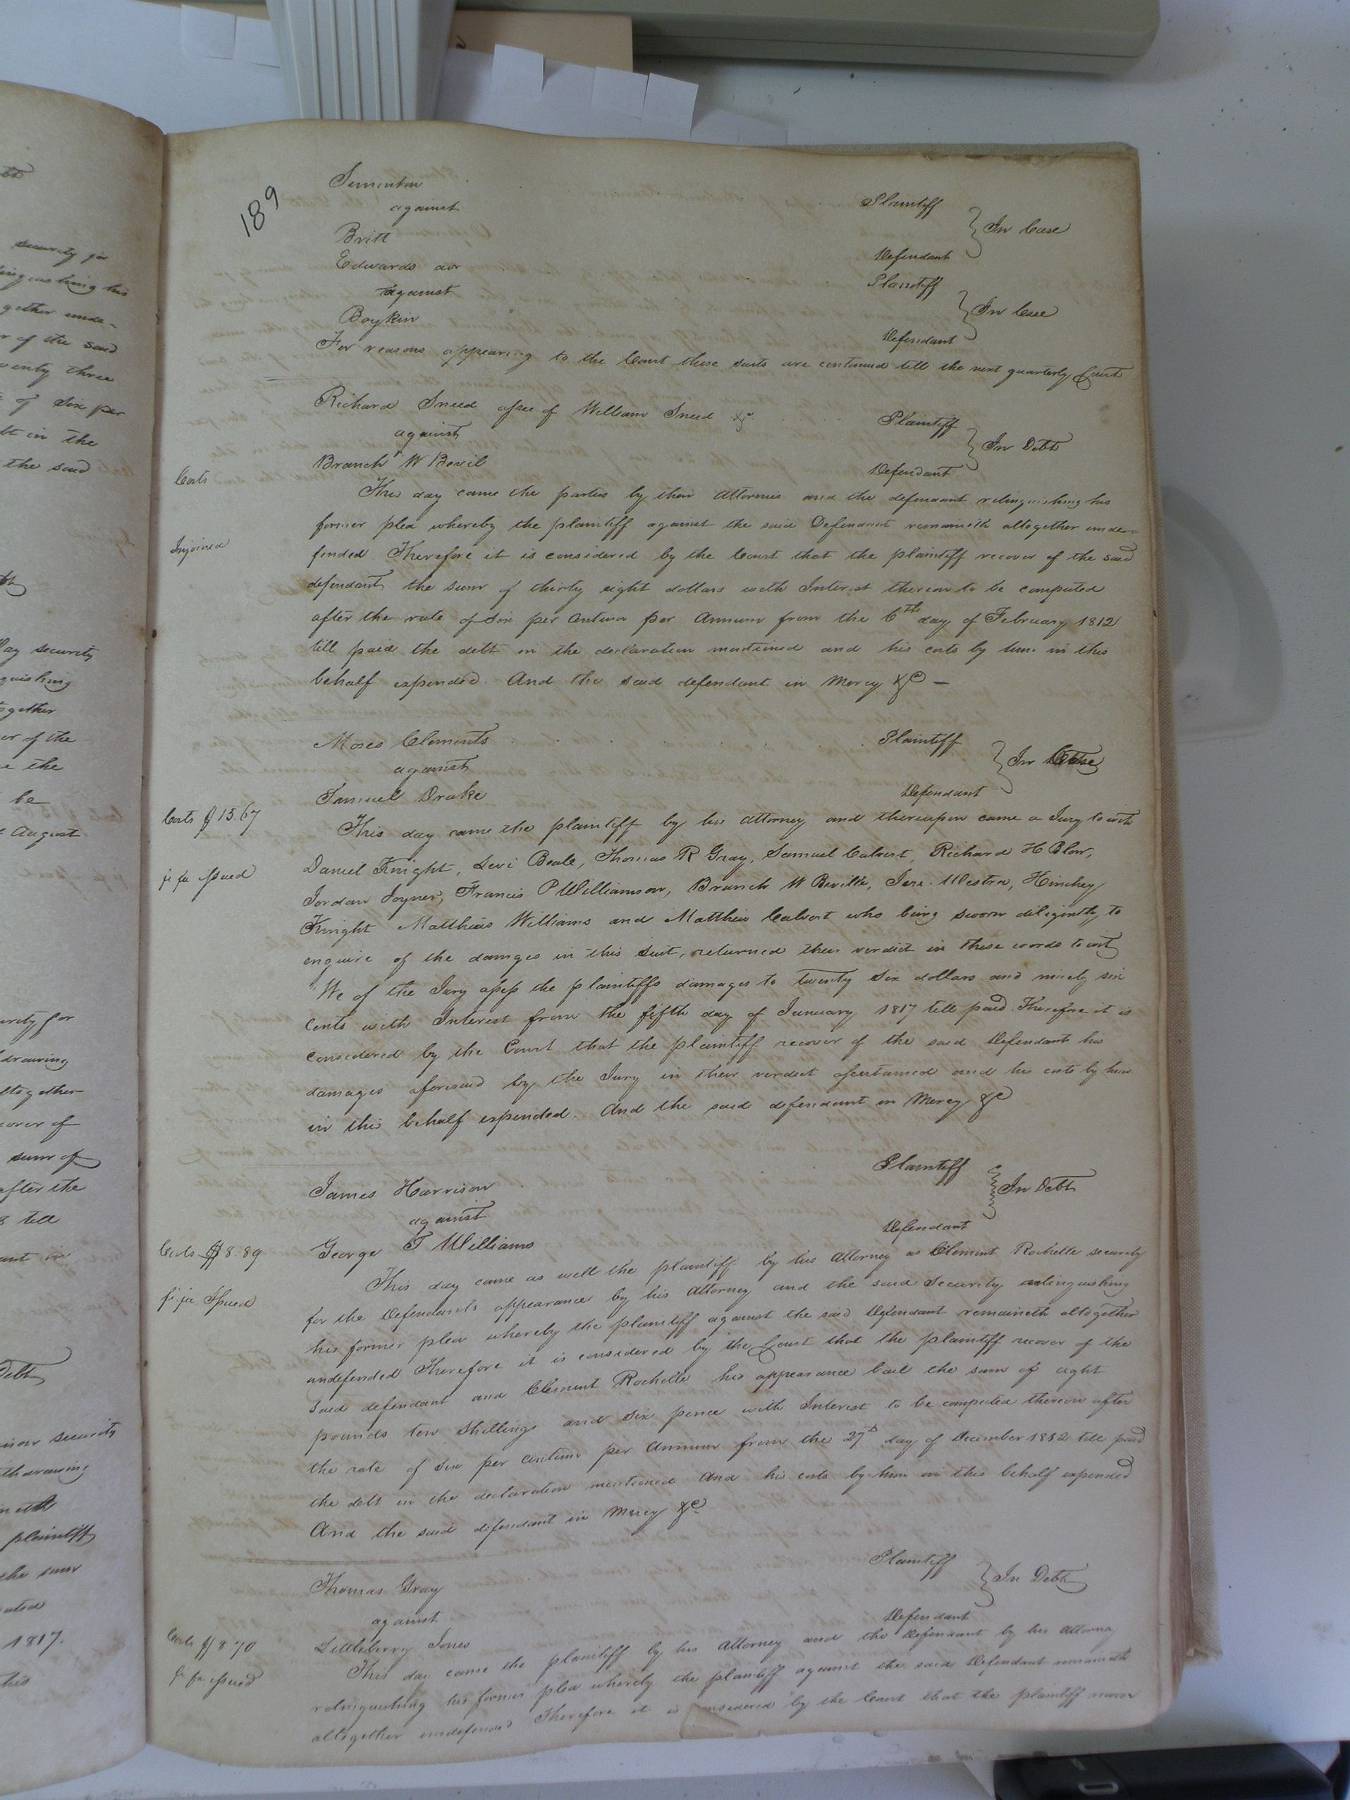 189
Plaintiff
against
In Case
Britt
Defendant
Edwards adr
Plaintiff
against
In Case
Boykin
Defendant
For reasons appearing to the Court these suits are continued till the next quarterly Court
Richard Sneed assee of William Sneed &c
Plaintiff
against
In Debt
Branch W Bevil
Defendant
Costs
This day came the parties by their attornies and the defendant relinquishing his
former plea whereby the plaintiff against the said Defendant remaineth altogether unde-
Injoined
fended Therefore it is considered by the Court that the plaintiff recover of the said
defendant the sum of thirty eight dollars with Interest thereon to be computed
after the rate of Six per Centum per Annum from the 6th day of February 1812
till paid the debt in the declaration mentioned and his costs by him in this
behalf expended And the said defendant in Mercy &c —
Moses Clements
Plaintiff
against
In Case
Samuel Drake
Defendant
Costs $15.67
This day came the plaintiff by his attorney and thereupon came a Jury to wit
Daniel Knight, Levi Beale, Thomas R Gray, Samuel Calvert, Richard H Blow,
fi fa issued
Jordan Joyner, Francis P Williamson, Branch W Beville, Jere. Westra, Hinchey
Knight Matthias Williams and Matthew Calvert who being sworn diligently to
enquire of the damages in this suit, returned their verdict in these words to wit
"We of the Jury assess the plaintiffs damages to twenty six dollars and ninety six
Cents with Interest from the fifth day of January 1817 till paid Therefore it is
considered by the Court that the plaintiff recover of the said Defendant his
damages aforesaid by the Jury in their verdict ascertained and his costs by him
in this behalf expended. And the said defendant in Mercy &c
James Harrison
Plaintiff
against
In Debt
George T Williams
Defendant
Costs $8.89
This day came as well the plaintiff by his Attorney as Clement Rochelle security
fi fa Issued
for the Defendants appearance by his Attorney and the said Security relinquishing
his former plea whereby the plaintiff against the said Defendant remaineth altogether
undefended Therefore it is considered by the Court that the plaintiff recover of the
said defendant and Clement Rochelle his appearance bail the sum of eight
pounds ten shillings and six pence with Interest to be computed thereon after
the rate of Six per Centum per Annum from the 27th day of December 1812 till paid
the debt in the declaration mentioned And his costs by him in this behalf expended
And the said defendant in Mercy &c
Thomas Gray
Plaintiff
against
In Debt
Littleberry Jones
Defendant
Costs $8 70
This day came the plaintiff by his Attorney and the Defendant by his Attorney
fi fa issued
relinquishing his former plea whereby the plaintiff against the said Defendant remaineth
altogether undefended Therefore it is considered by the Court that the plaintiff recover